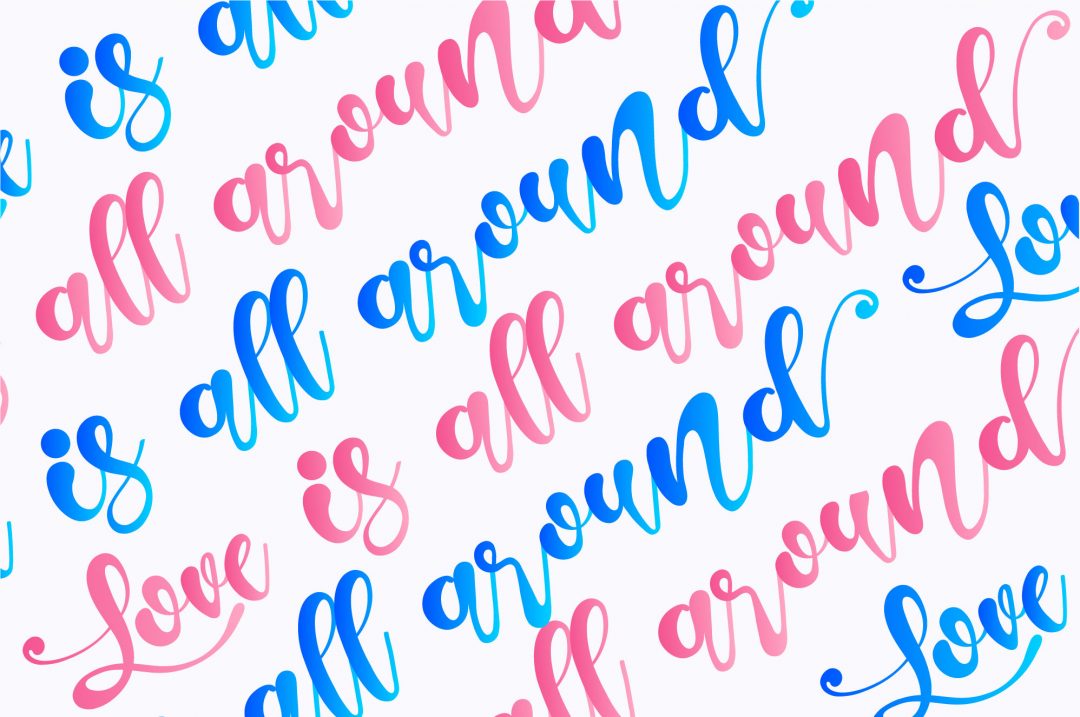 is all
all around
is all around
Love is all around
all around Lov
all around
Love